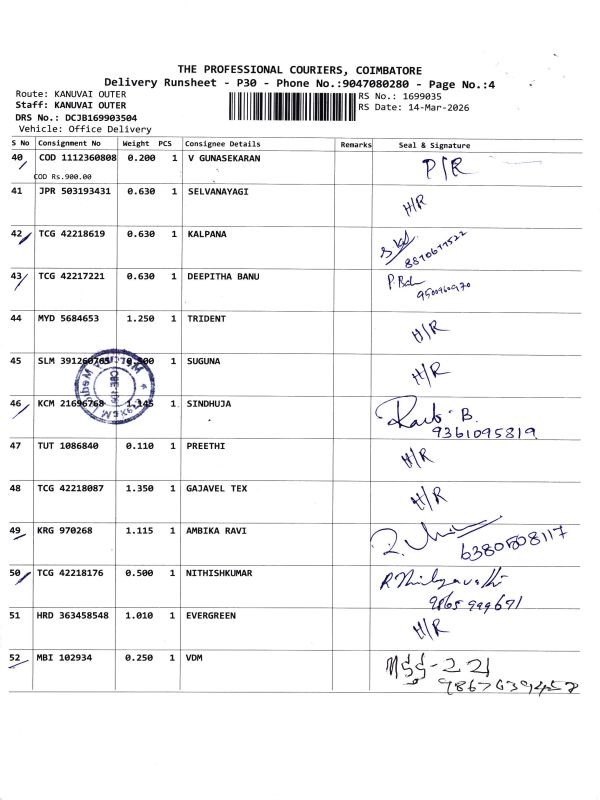 THE PROFESSIONAL COURIERS, COIMBATORE
Delivery Runsheet - P30 - Phone No.:9047080280 - Page No.:4
Route: KANUVAI OUTER
RS No.: 1699035
Staff: KANUVAI OUTER
RS Date: 14-Mar-2026
DRS No.: DCJB169903504
Vehicle: Office Delivery
S No Consignment No Weight PCS Consignee Details Remarks Seal & Signature
40 COD 1112360808 0.200 1 V GUNASEKARAN P/R
COD Rs.900.00
41 JPR 503193431 0.630 1 SELVANAYAGI H/R
42 TCG 42218619 0.630 1 KALPANA
43 TCG 42217221 0.630 1 DEEPITHA BANU
9500960970
44 MYD 5684653 1.250 1 TRIDENT H/R
45 SLM 1 SUGUNA H/R
46 KCM 21696768 1.145 1 SINDHUJA B.
9361095819
47 TUT 1086840 0.110 1 PREETHI H/R
48 TCG 42218087 1.350 1 GAJAVEL TEX H/R
49 KRG 970268 1.115 1 AMBIKA RAVI
50 TCG 42218176 0.500 1 NITHISHKUMAR
9865999671
51 HRD 363458548 1.010 1 EVERGREEN H/R
52 MBI 102934 0.250 1 VDM